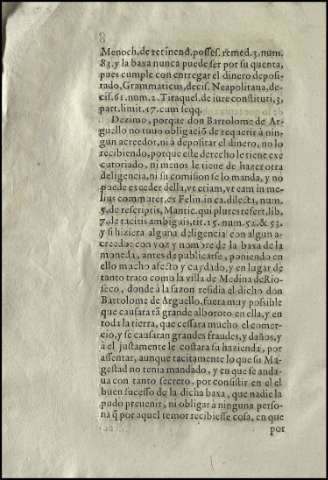 8
Menoch. de retinend. posses. remed. 3. num.
83. y la baxa nunca puede ser por su quenta,
pues cumple con entregar el dinero deposi-
tado, Grammaticus, decis. Neapolitana, de-
cis. 61. num. 2. Tiraquel. de iure constituti, 3.
part. limit. 17. cum seqq.
Dezimo, porque don Bartolome de Ar-
guello no tuuo obligaciõ de requerir à nin-
gun acreedor, ni à depositar el dinero, no lo
recibiendo, porque este derecho le tiene exe
cutoriado, ni menos le tiene de hazer otra
deligencia, ni su comision se lo manda, y no
puede exceder della, vt etiam, vt eam in me-
lius commutet, ex Felin. in ca. dilecta, num.
5. de rescriptis, Mantic. qui plures refert, lib.
7. de tacitis ambiguis, tit. 15. num. 52. & 53.
y si hiziera alguna deligencia con algun a-
creedor con voz y nombre de la baxa de la
moneda, antes de publicarse, poniendo en
ello mucho afecto y cuydado, y en lugar de
tanto trato como la villa de Medina de Rio-
seco, donde à la sazon residia el dicho don
Bartolome de Arguello, fuera muy possible
que causara tã grande alboroto en ella, y en
toda la tierra, que cessara mucho el comer-
cio, y se causaran grandes fraudes, y daños, y
a el justamente le costara su hazienda, por
assentar, aunque tacitamente lo que su Ma-
gestad no tenia mandado, y en que se anda-
ua con tanto secreto, por consistir en el el
buen sucesso de la dicha baxa, que nadie la
pudo preuenir, ni obligar à ninguna perso-
na q̃ por aquel temor recibiesse cosa, en que
por